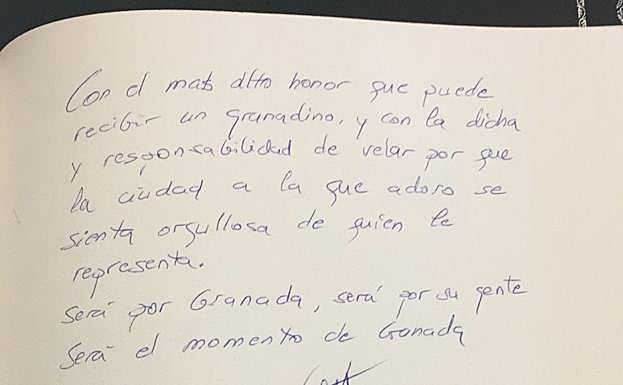 Con el mas alto honor que puede
recibir un granadino, y con la dicha
y responsabilidad de velar por que
la ciudad a la que adoro se
sienta orgullosa de quien le
representa.
Será por Granada, será por su gente
Será el momento de Granada